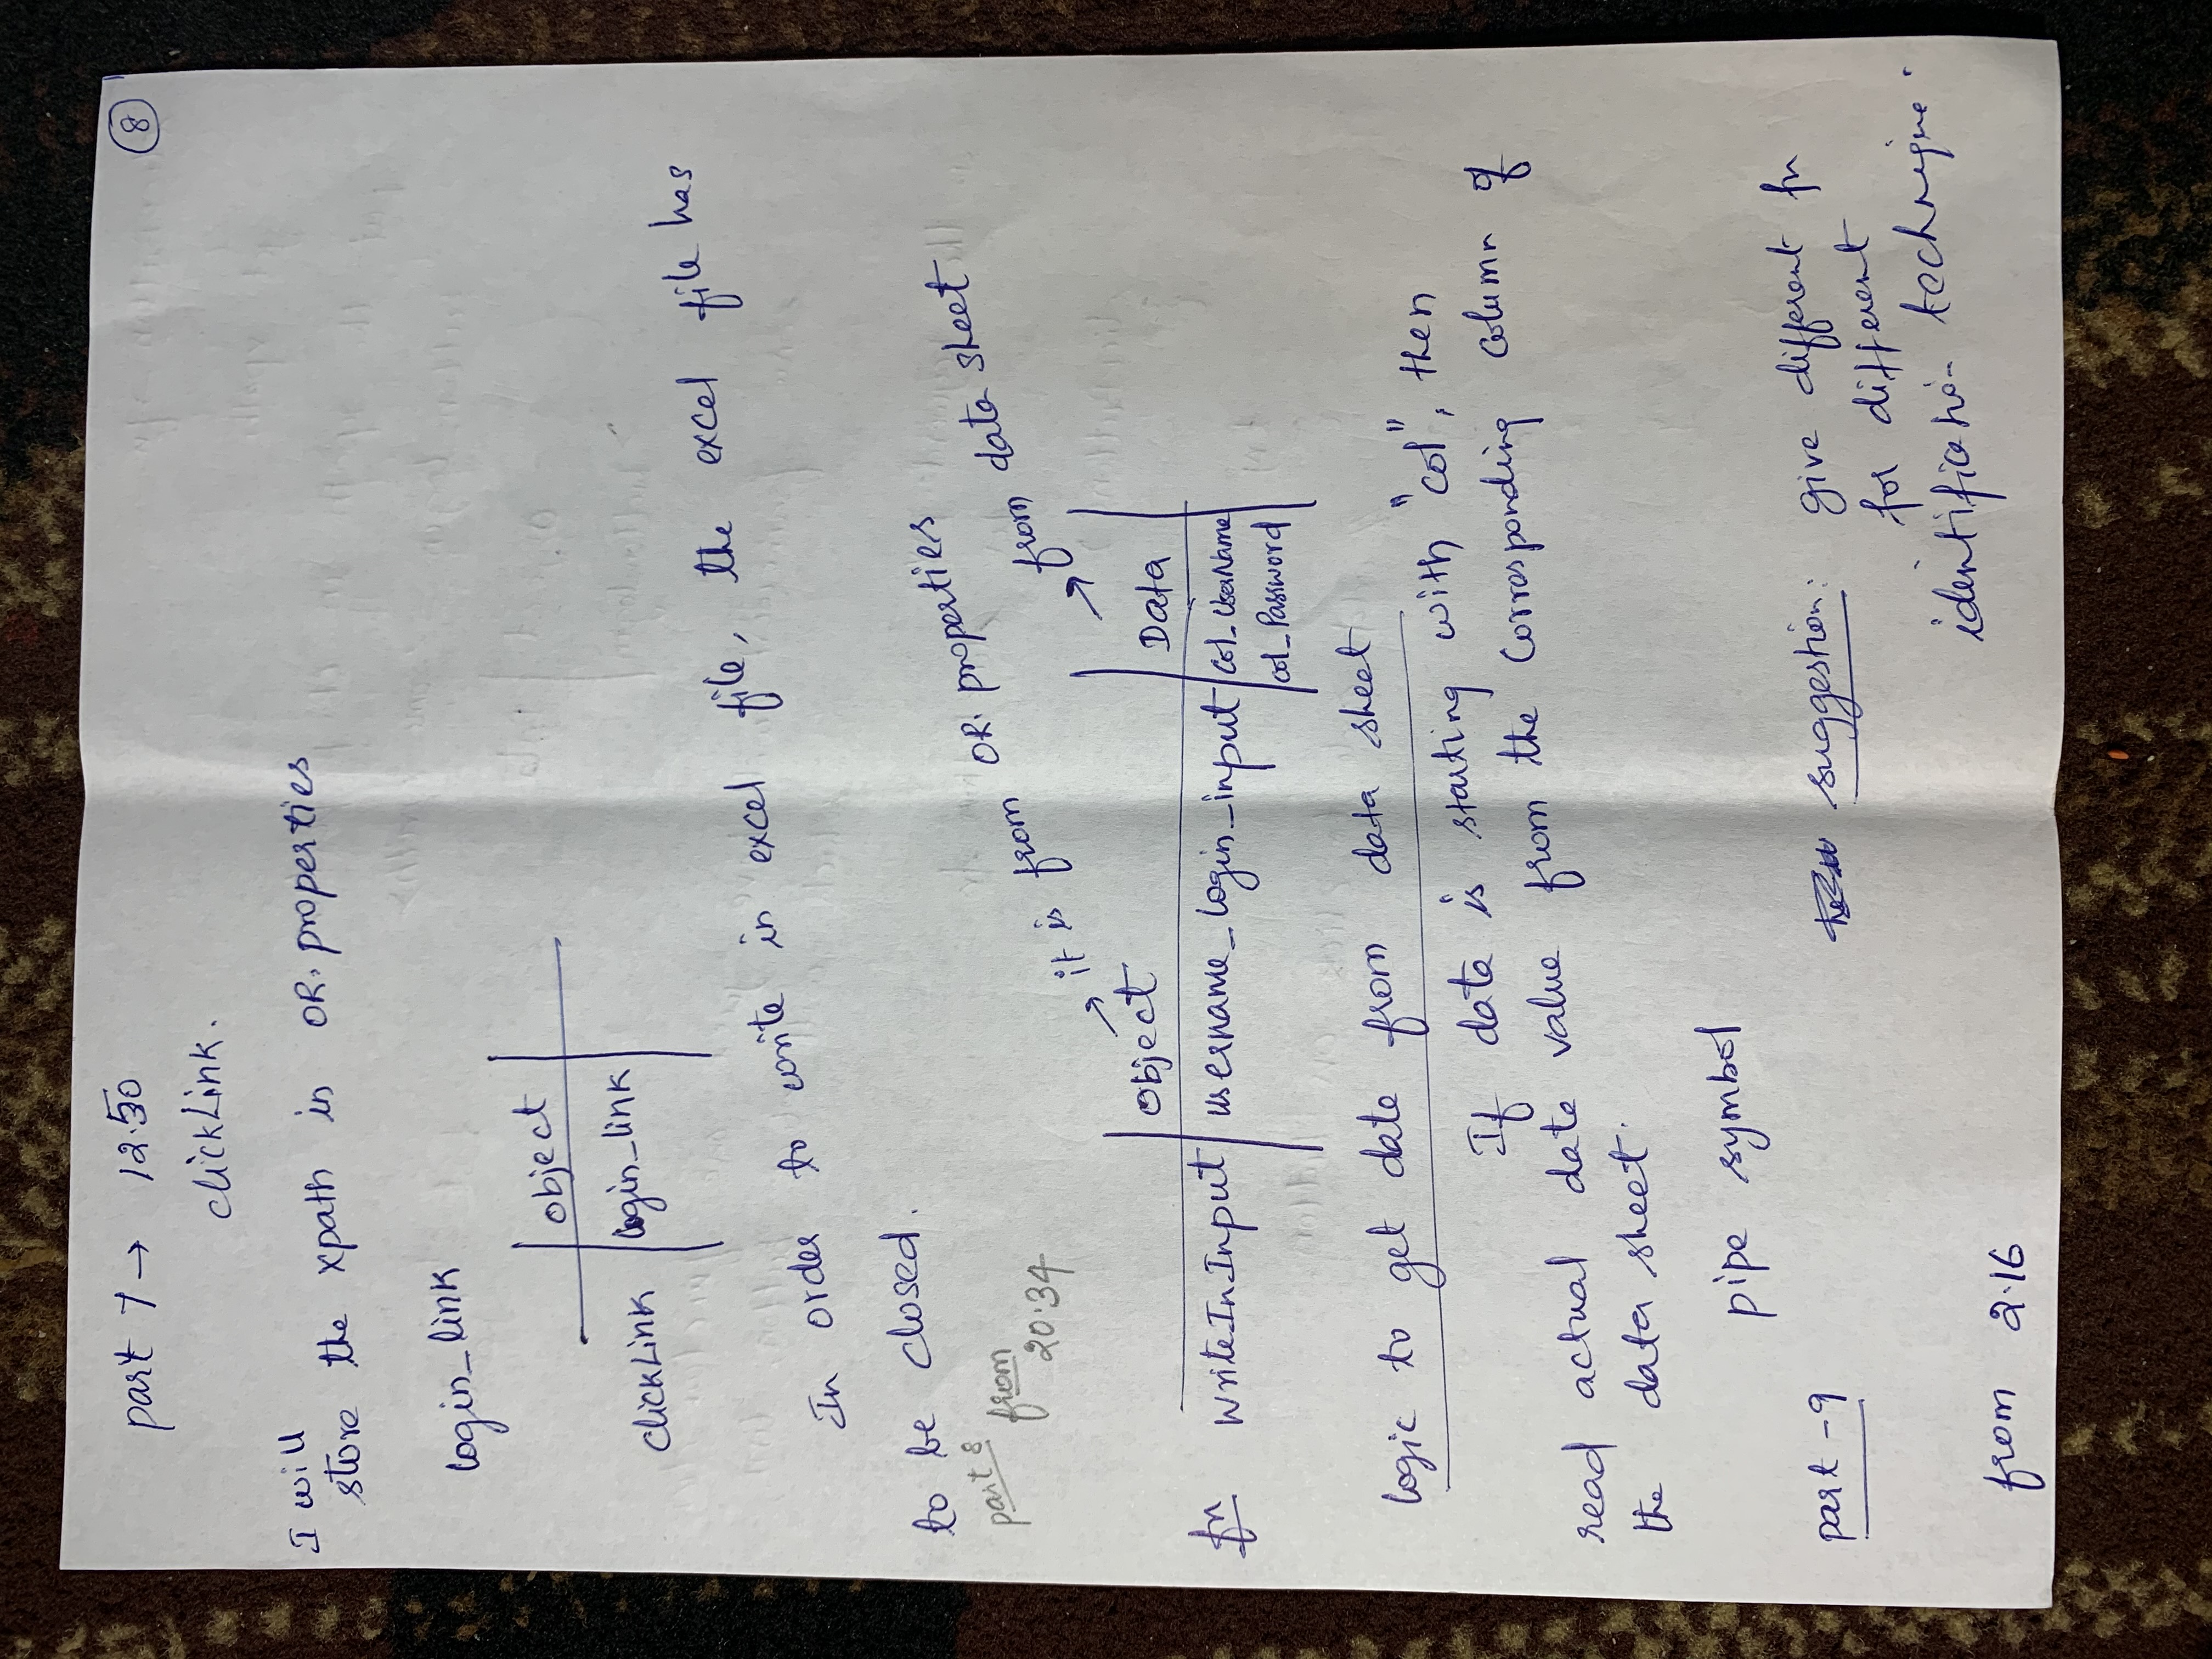 8
part 7 → 12.50
clickLink.
I will
store the xpath in OR. properties
login_link
object
clickLink login_link
In order to write in excel file, the excel file has
to be closed.
part 8
from
20.34
→ it is from OR. properties
→ from data sheet
Object Data
fn WriteInInput username_login_input col_UserName
col_Password
logic to get data from data sheet
If data is starting with "col", then
read actual data value from the corresponding column of
the data sheet.
pipe symbol
part -9
suggestion: give different fn
for different
identification technique.
from 2.16